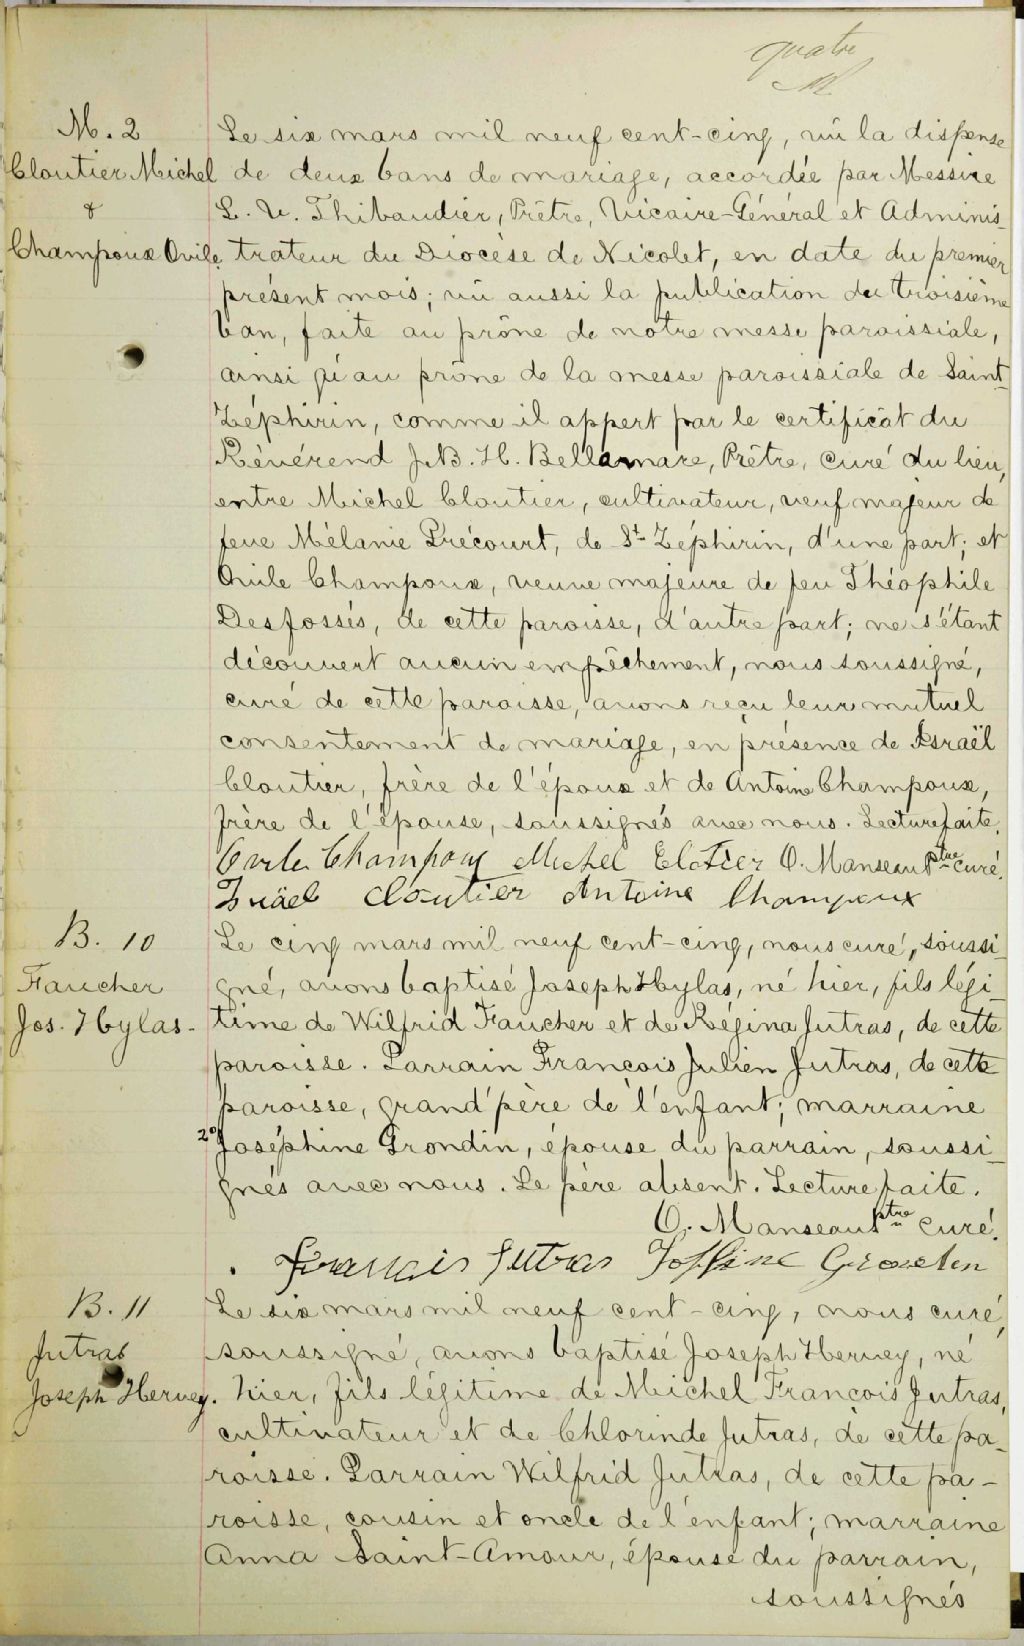 quatre
M. 2
Cloutier Michel
&
Champoux Ovile
Le six mars mil neuf cent-cinq, vû la dispense
de deux bans de mariage, accordée par Messire
L. V. Thibaudier, Prêtre, Vicaire-Général et Adminis-
trateur du Diocèse de Nicolet, en date du premier
présent mois; vû aussi la publication du troisième
ban, faite au prône de notre messe paroissiale,
ainsi qu'au prône de la messe paroissiale de Saint-
Zéphirin, comme il appert par le certificat du
Révérend J. B. H. Bellemare, Prêtre, Curé du lieu,
entre Michel Cloutier, cultivateur, veuf majeur de
feue Mélanie Précourt, de St Zéphirin, d'une part; et
Ovile Champoux, veuve majeure de feu Théophile
Desfossés, de cette paroisse, d'autre part; ne s'étant
découvert aucun empêchement, nous soussigné,
curé de cette paroisse, avons reçu leur mutuel
consentement de mariage, en présence de Israël
Cloutier, frère de l'époux et de Antoine Champoux,
frère de l'épouse, soussignés avec nous. Lecture faite.
Ovile Champoux Michel Clotier O. Manseau ptre curé.
Israël Cloutier Antoine Champoux
B. 10
Faucher
Jos. Hylas.
Le cinq mars mil neuf cent-cinq, nous curé, soussi-
gné, avons baptisé Joseph Hylas, né hier, fils légi-
time de Wilfrid Faucher et de Régina Jutras, de cette
paroisse. Parrain François Julien Jutras, de cette
paroisse, grand'père de l'enfant; marraine
2° Joséphine Grondin, épouse du parrain, soussi-
gnés avec nous. Le père absent. Lecture faite.
O. Manseau ptre curé.
Francais Jutras Joffine Grondin
B. 11
Jutras
Joseph Hervey.
Le six mars mil neuf cent-cinq, nous curé,
soussigné, avons baptisé Joseph Hervey, né
hier, fils légitime de Michel François Jutras,
cultivateur et de Chlorinde Jutras, de cette pa-
roisse. Parrain Wilfrid Jutras, de cette pa-
roisse, cousin et oncle de l'enfant; marraine
Anna Saint-Amour, épouse du parrain,
soussignés